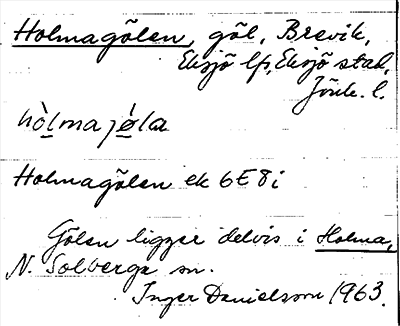 Holmagölen, göl, Brevik,
Eksjö lfs, Eksjö stad,
Jönk. l.
hòlmajø̀la
Holmagölen ek 6E8i
Gölen ligger delvis i Holma,
N. Solberga sn.
Inger Danielsson 1963.